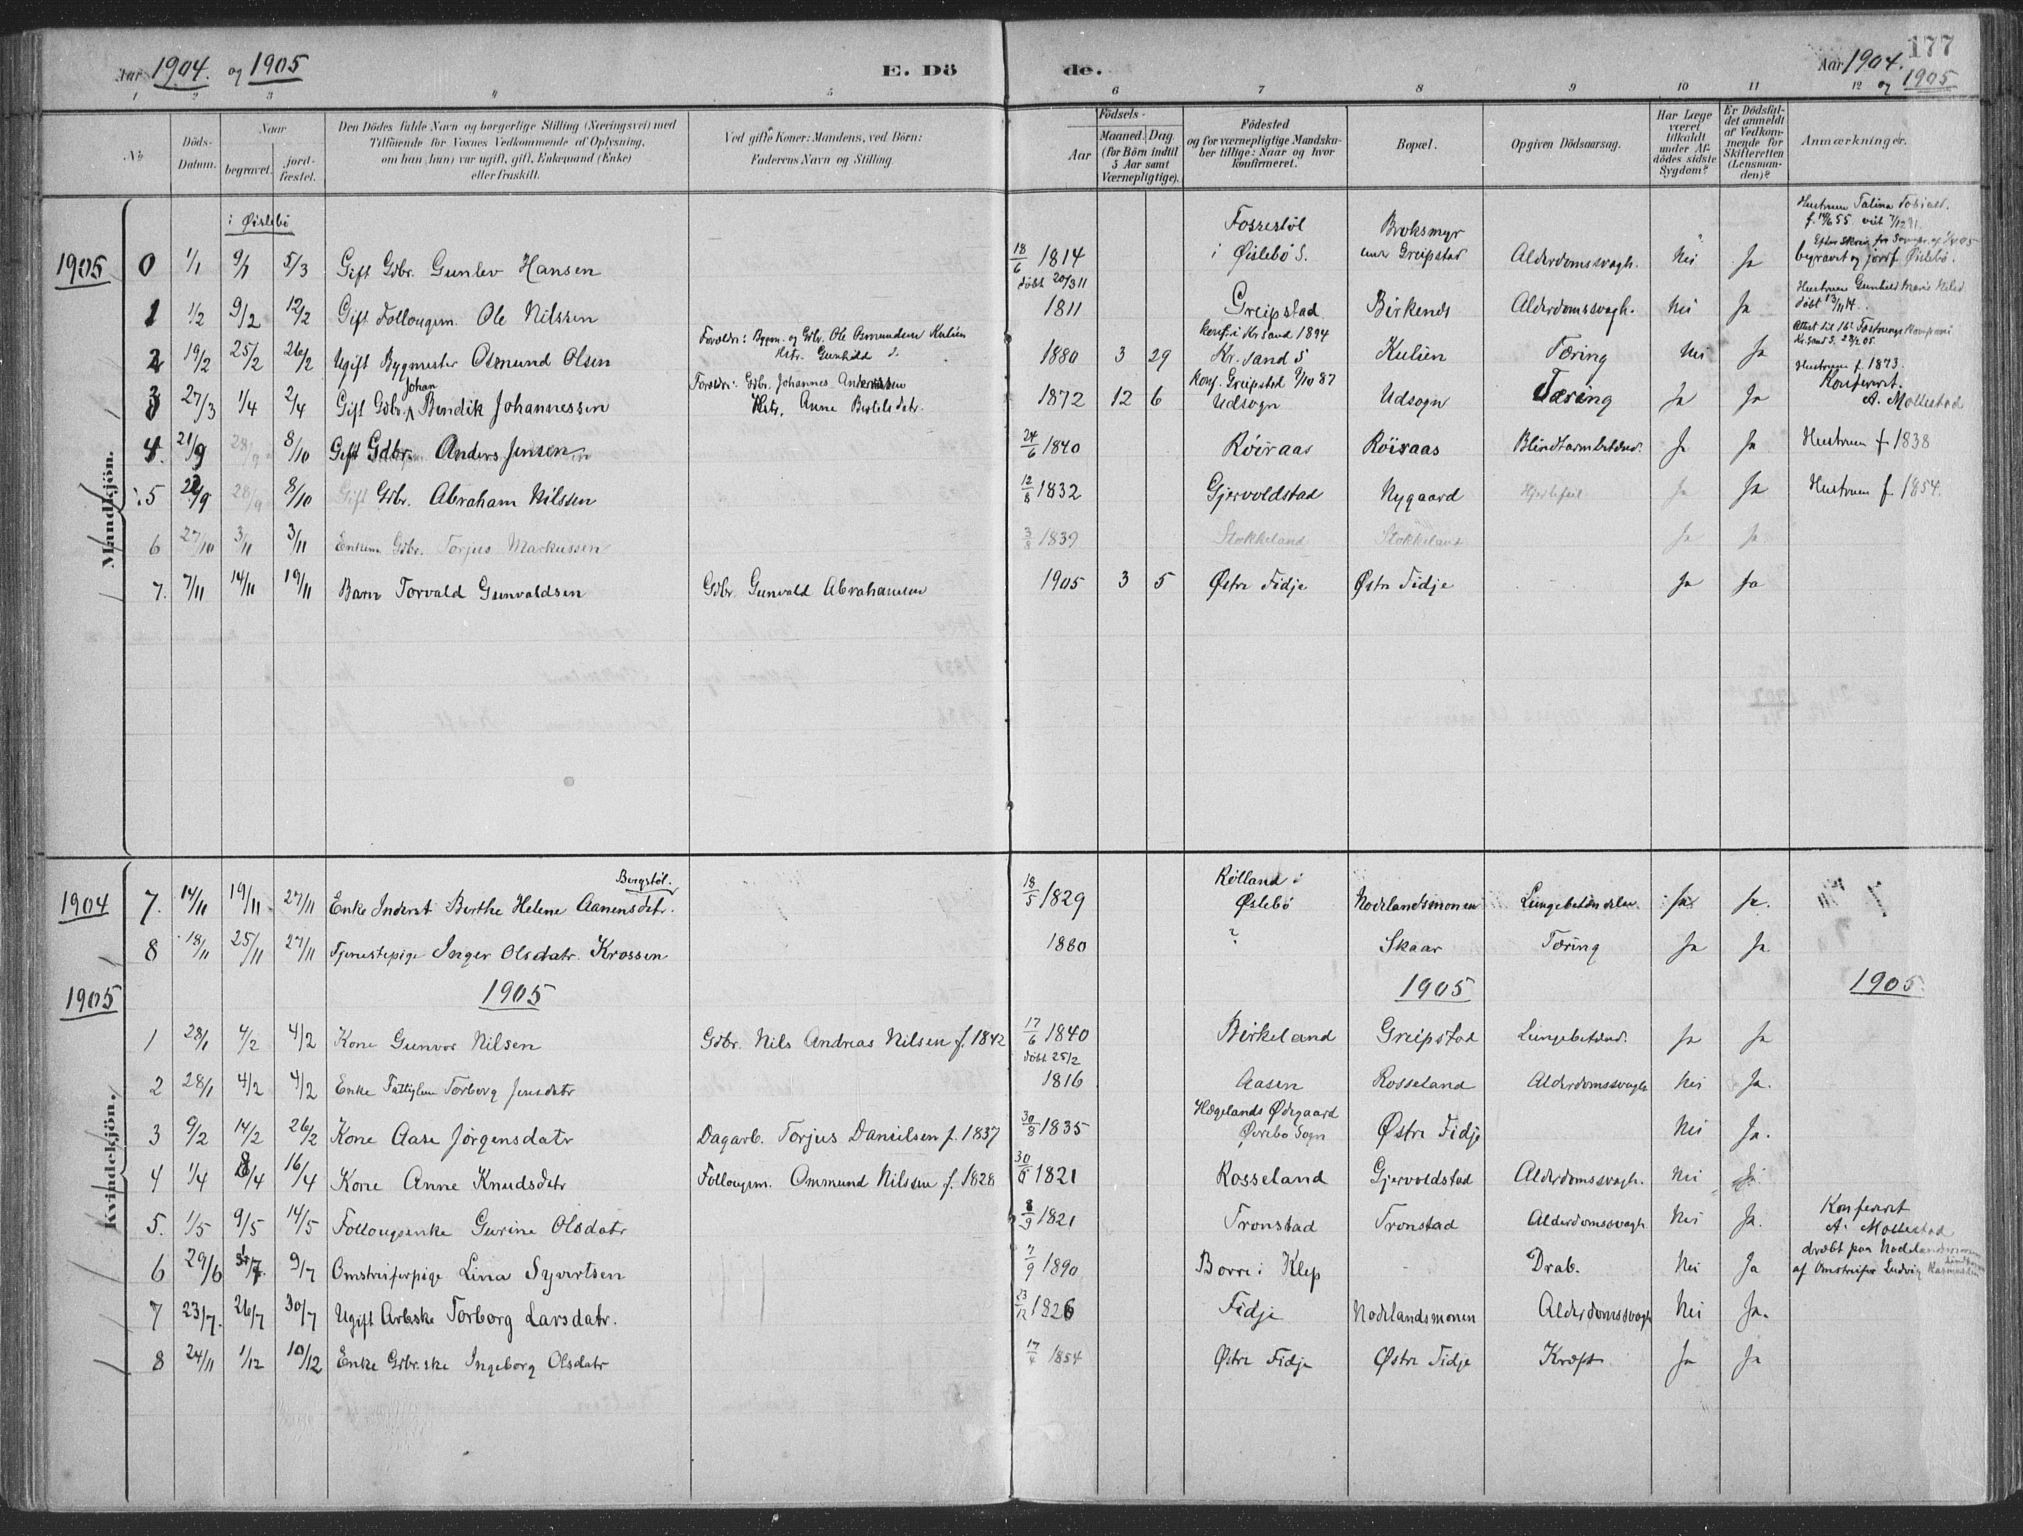 Aar 1904. og 1905
E. Dö de.
177
Aar 1904. og 1905
1 2 3 4 5 6 7 8 9 10 11 12
No
Döds-Datum.
Naar
begravet.
jordfæstet.
Den Dödes fulde Navn og borgerlige Stilling (Næringsvei) med
Tilföiende for Voxnes Vedkommende af Oplysning,
om han (hun) var ugift, gift, Enkemand (Enke)
eller fraskilt.
Ved gifte Koner: Mandens, ved Börn:
Faderens Navn og Stilling.
Födsels-
Aar
Maaned. Dag.
(for Börn indtil
5 Aar samt
Værnepligtige).
Födested
og for værnepligtige Mandskaber tillige: Naar og hvor
konfirmeret.
Bopæl.
Opgiven Dödsaarsag.
Har Læge været tilkaldt under Afdödes sidste Sygdom?
Er Dödsfaldet anmeldt af Vedkommende for Skifteretten (Lensmanden)?
Anmærkninger.
Mandkjön.
i Øislebö
1905 0 1/1 9/1 5/3 Gift Gdbr. Gunlev Hansen 18/6 1814 Fossestøl i Øislebö S. Broksmyr Greipstad Alderdomssvagh. Nei Ja
Hustruen Talina
begravet og jordf. Øislebö.
1 1/2 9/2 12/2 Gift Follougsm. Ole Nilssen döbt 20/3 11 1811 Greipstad Birkenes Alderdomssvagh. Nei Ja Hustruen Gunhild Marie döbt 13/11 14.
2 19/2 25/2 26/2 Ugift Bygmester Osmund Olsen Foreldr: Bygm. og Gdbr. Ole Osmundsen Kulien Hstr. Gunhild 1880 3 29 konf. i Kr.sand 1894 Kr.sand S Kulien Tæring Nei Ja
3 27/3 1/4 2/4 Gift Gdbr. Johan Bendik Johannessen Foreldr: Gdbr. Johannes Andersen Hstr. Anne Bertelsdatr. 1872 12 6 konf. Greipstad 2/10 87 Udsogn Udsogn Tæring Ja Ja Hustruen f. 1873. Konfereret. A. Mollestad
4. 21/9 28/9 8/10 Gift Gdbr. Anders Jensen 24/6 1840 Røiraas Røiraas Blindtarmbetænd. Ja Ja Hustruen f. 1838
5 22/9 28/9 8/10 Gift Gdbr. Abraham Nilssen 12/8 1832 Gjervoldstad Nygaard Hjertefeil Ja Ja Hustruen f. 1854.
6 27/10 3/11 3/11 Enkem. Gdbr. Torjus Markussen 3/8 1839 Stokkeland Stokkeland Ja Ja
7. 7/11 14/11 19/11 Barn Torvald Gunvaldsen Gdbr Gunvald Abrahamsen 1905 3 5 Østre Fidje Østre Fidje Ja Ja
Kvindekjön.
1904 7. 14/11 19/11 27/11 Enke Inderst Berthe Helene Aanensdatr. Bergstøl. 18/5 1829 Rølland i Øslebö Nodelandsmonen Lungebetændelse Ja Ja.
8 18/11 25/11 27/11 Tjenestepige Inger Olsdatr. Krossen 1880 ? Skaar Tæring Ja Ja
1905 1905 1905 1905.
1 28/1 4/2 4/2 Kone Gunvor Nilsen Gdbr. Nils Andreas Nilsen f. 1842 17/6 1840 Birkeland Greipstad Lungebetænd. Ja Ja
2 28/1 4/2 4/2 Enke Fattiglem Torborg Jensdatr döbt 25/2 1816 Aasen Rosseland Alderdomssvagh Nei Ja.
3 9/2 14/2 26/2 Kone Aase Jörgensdatr Dagarb. Torjus Danielsen f. 1837 30/8 1835 Hægelands Ødegaard Øvrebö Sogn Østre Fidje Nei Ja.
4 1/4 8/4 16/4 Kone Anne Knudsdatr Follougsm. Ommund Nilsen f. 1828 30/6 1821 Rosseland Gjervoldstad Alderdomssvagh. Nei Ja
5. 1/5 9/5 14/5 Follougsenke Gurine Olsdatr 8/9 1821 Tronstad Tronstad Alderdomssvagh Nei Ja. Konfereret A. Mollestad
6 29/6 9/7 Omstreiferpige Lina Syvertsen 7/9 1890 Borre i Klep Drab. Nei Ja dræbt paa Nodelandsmonen af Omstreifer Ludvig Rasmussen
7 23/7. 26/7 30/7 Ugift Arbske Torborg Larsdatr. 23/12 1826 Fidje Nodelandsmonen Alderdomssvagh Nei Ja.
8 24/11 1/12 10/12 Enke Gdbr.ske Ingeborg Olsdatr 17/4 1854 Østre Fidje Østre Fidje Kræft Ja Ja